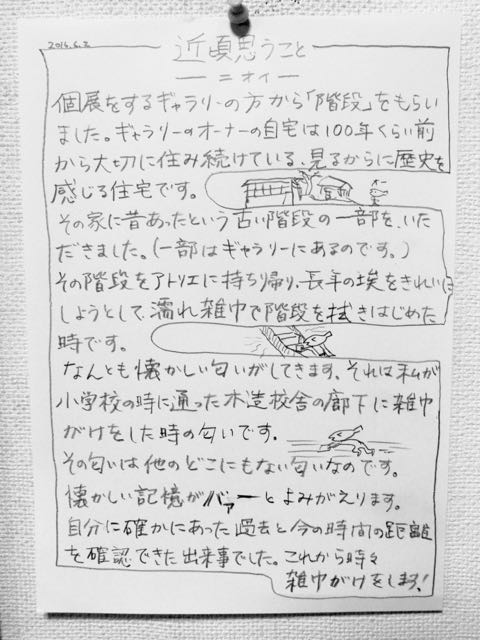 2016.6.2
近頃思うこと
ーニオイー
個展をするギャラリーの方から「階段」をもらい
ました。ギャラリーのオーナーの自宅は100年くらい前
から大切に住み続けている、見るからに歴史を
感じる住宅です。
その家に昔あったという古い階段の一部を、いた
だきました。(一部はギャラリーにあるのです。)
その階段をアトリエに持ち帰り、長年の埃をきれいに
しようとして、濡れ雑巾で階段を拭きはじめた
時です。
なんとも懐かしい匂いがしてきます。それは私が
小学校の時に通った木造校舎の廊下に雑巾
がけをした時の匂いです。
その匂いは他のどこにもない匂いなのです。
懐かしい記憶がバァーとよみがえります。
自分に確かにあった過去と今の時間の距離
を確認できた出来事でした。これから時々
雑巾がけをします!